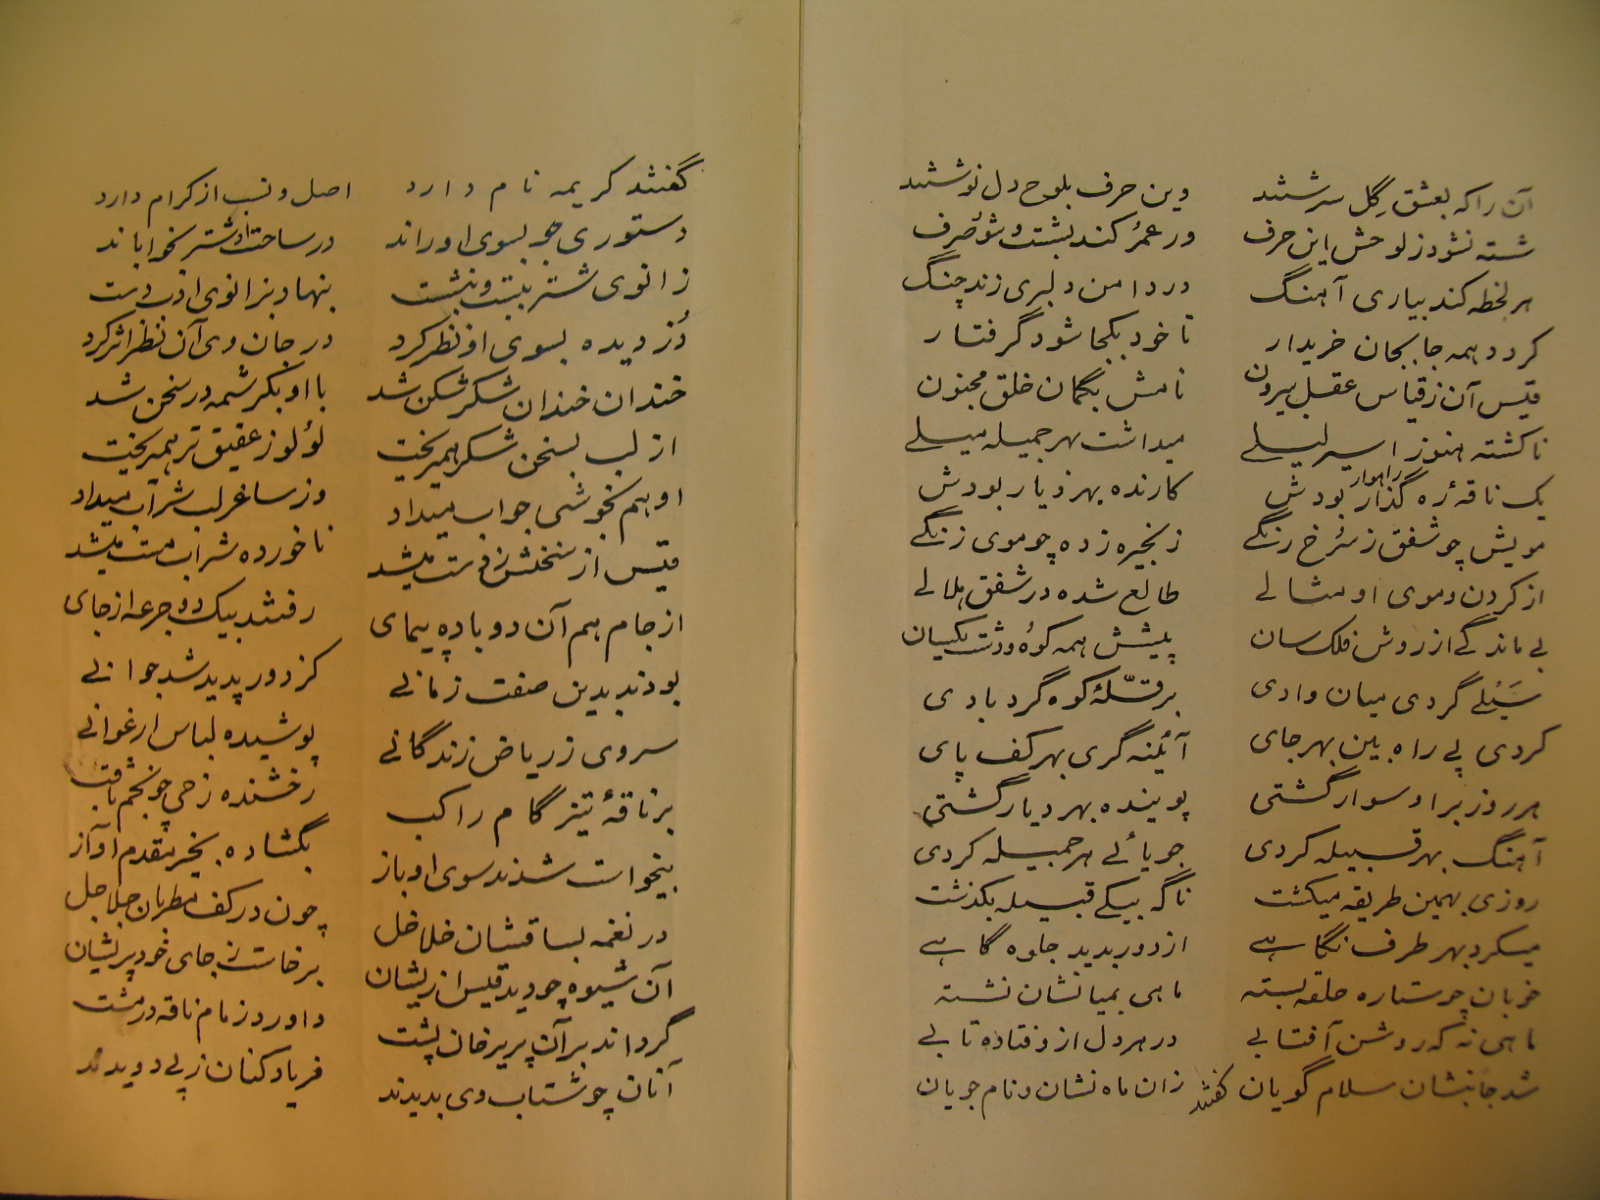 آن را که بعشق گِل سرشتند وین حرف بلوح دل نوشتند
شسته نشود ز لوحش این حرف ور عمرُ کند بشست و شو صُرف
هر لحظه کند بیاری آهنگ در دامن دلبری زند چنگ
کردد همه جا بجان خریدار تا خود بکجا شود گرفتار
قیس آن ز قیاس عقل بیرون نامش بگمان خلق مجنون
ناکشته هنوز اسیر لیلے میداشت بهر جمیله میلے
یک ناقهٔ ره گذار راهوار بودش کارنده بهر دیار بودش
مویش چو شفق ز سُرخ رنگے زنجیره زده چو موی زنگے
از کردن و موی او مثالے طالع شده در شفق هلالے
بے ماندگے از روش فلک سان پیشش همه کوه و دشت یکسان
سَیلے گردی میان وادی بر قلّهٔ کوه گردبادی
کردی پے راه بین بهر جای آئینه گری بهر کف پای
هر روز بر او سوار گشتی پوینده بهر دیار گشتی
آهنگ بهر قبیله کردی جویائے هر جمیله کردی
روزی بهمین طریقه میکشت ناگه بیکے قبیله بگذشت
میکرد بهر طرف نگاهے از دور بدید جلوه گاهے
خوبان چو ستاره حلقه بسته ماهی بمیانشان نشسته
ماهی نه که روشن آفتابے در هر دل ازو فتاده تابے
شد جانبشان سلام گویان گفتند زان ماه نشان و نام جویان
گفتند کریمه نام دارد اصل و نسب از کرام دارد
دستوری جو بسوی او راند در ساحت او شتر بخواباند
زانوی شتر ببست و بنشست بنهاد بزانوی ادب دست
دُزدیده بسوی او نظر کرد در جان وی آن نظر اثر کرد
خندان خندان شکر شکن شد با او بکرشمه در سخن شد
از لب بسخن شکر همیریخت لؤلؤ ز عقیق تر همیریخت
او هم بخوشی جواب میداد وز ساغر لب شراب میداد
قیس از سخنش ز دست میشد ناخورده شراب مست میشد
از جام هم آن دو باده پیمای رفتند بیک دو جرعه از جای
بودند بدین صفت زمانے کز دور پدید شد جوانے
سروی ز ریاض زندگانے پوشیده لباس ارغوانے
بر ناقهٔ تیز گام راکب رخشنده ز حی چو نجم ثاقب
بیخواست شدند سوی او باز بگشاده بخیر مقدم آواز
در نغمه بساقشان خلاخل چون در کف مطربان جلاجل
آن شیوه چو دید قیس ازیشان برخاست ز جای خود پریشان
گرداند بر آن پریرخان پشت داورد زمام ناقه در مشت
آنان چو شتاب وی بدیدند فریاد کنان ز پے دویدند